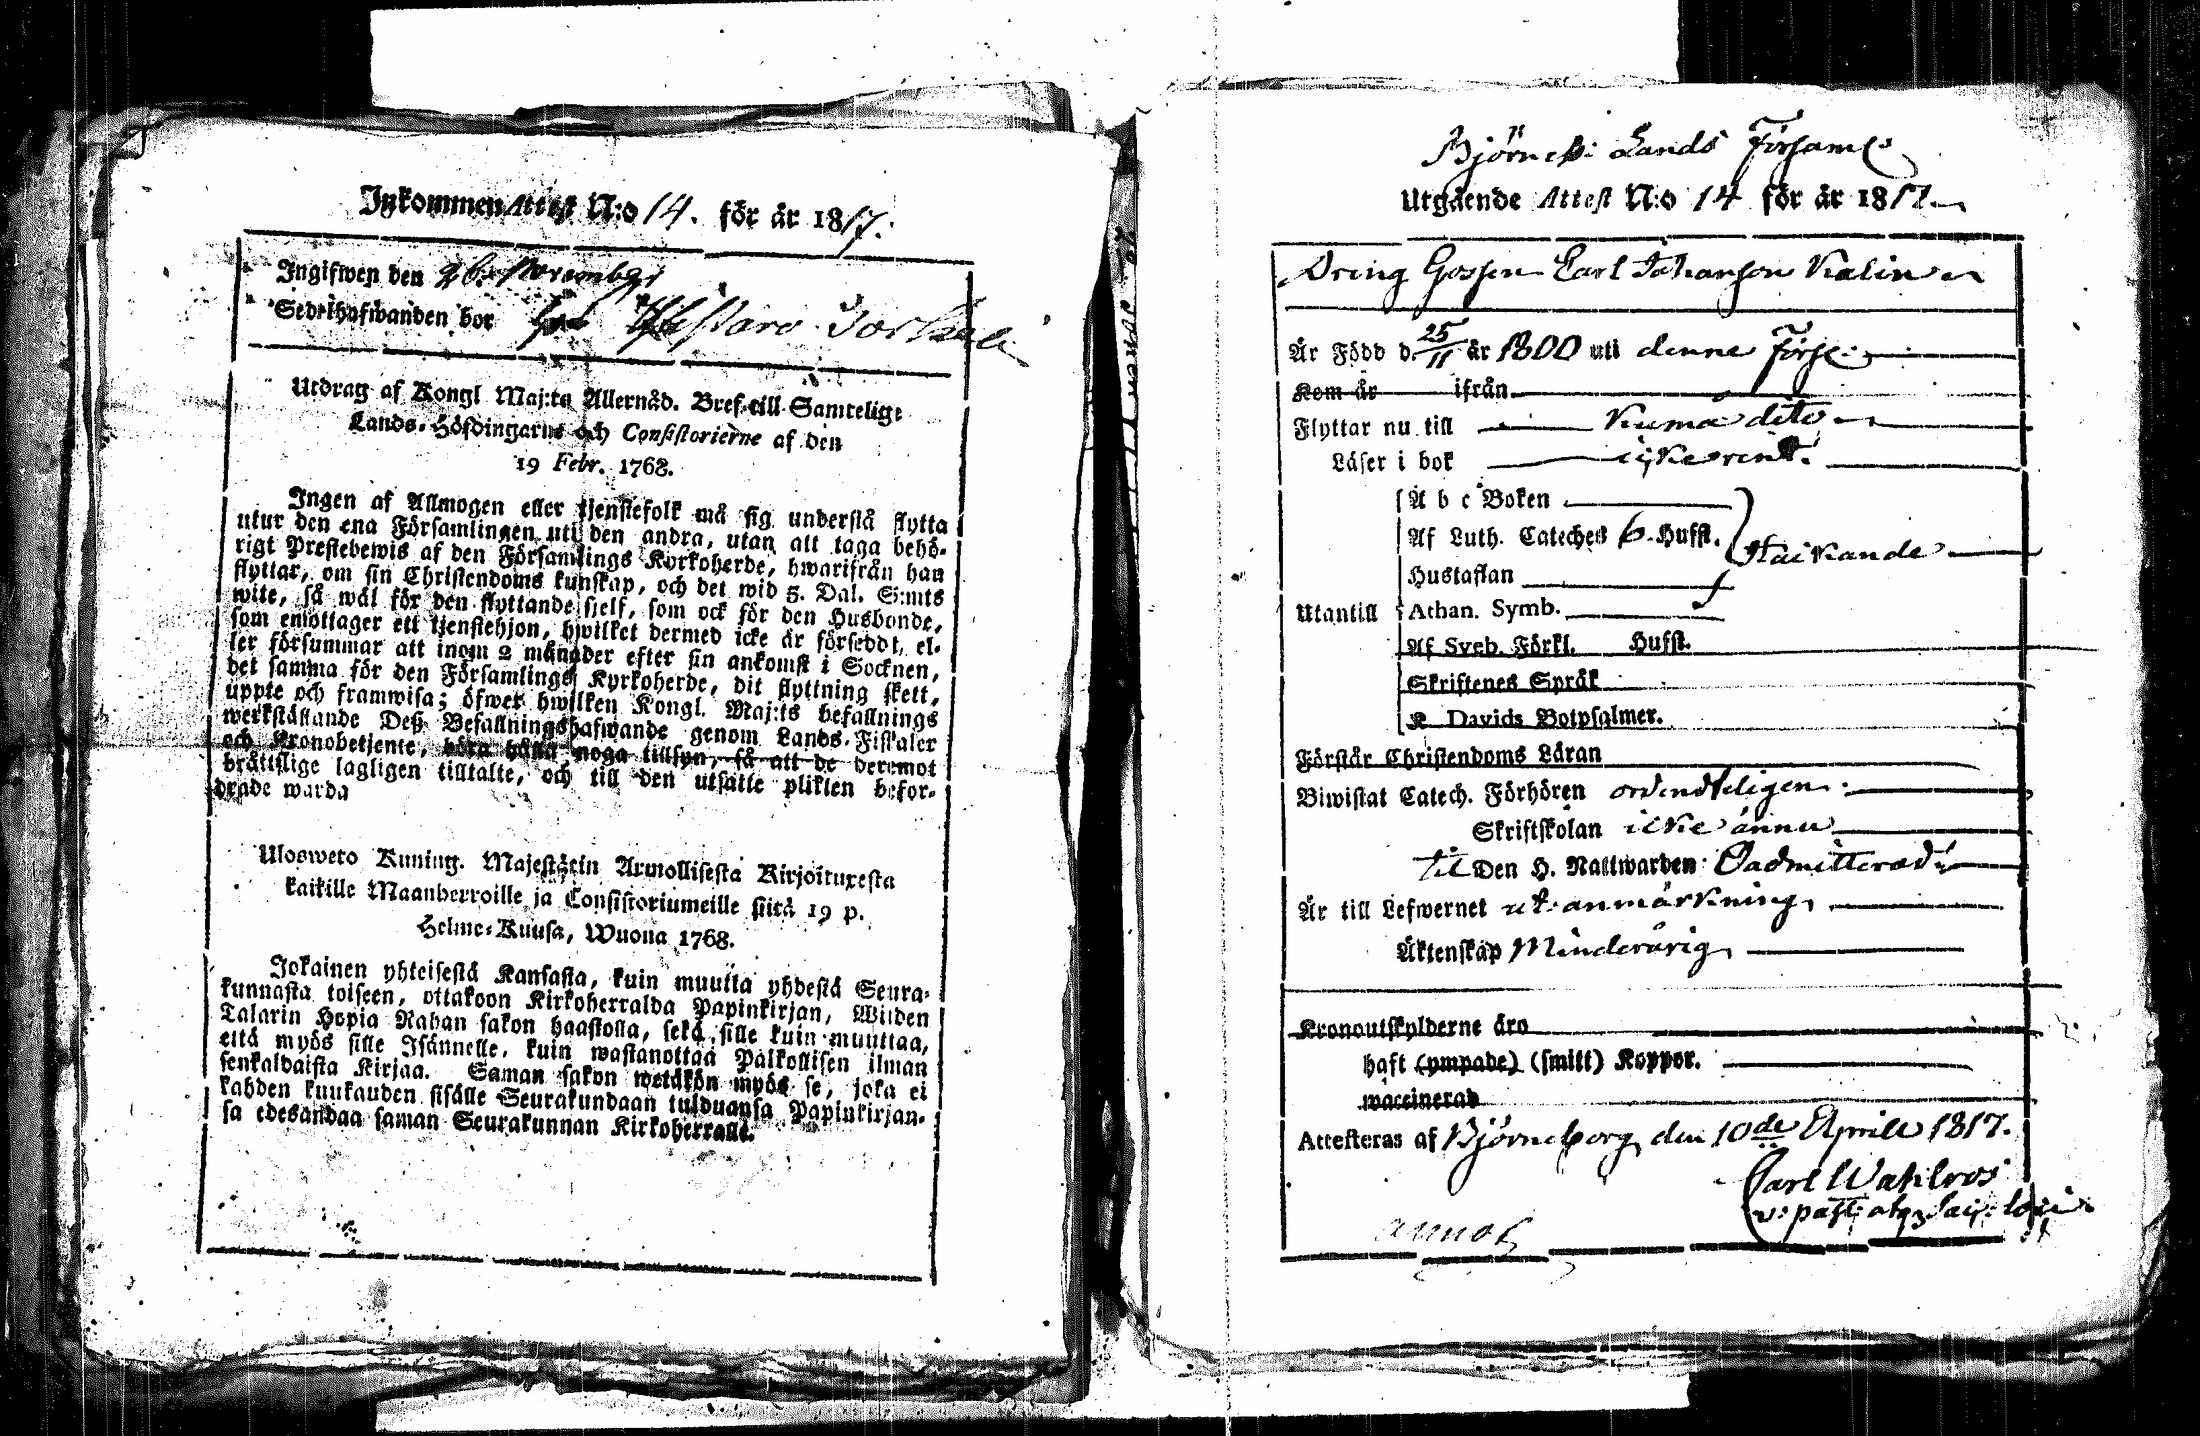 Inkommen Attest N:o 14. för år 1817.
Ingifwen den 26. November
Sedelhafwanden bor
Utdrag af Kongl Maj:ts Allernåd. Bref till Samtelige
Lands-Höfdingarne och Consistorierne af den
19 Febr. 1768.
Ingen af Allmogen eller tjenstefolk må sig understå flytta
utur den ena Församlingen uti den andra, utan att taga behö-
rigt Prestebewis af den Församlings Kyrkoherde, hwarifrån han
flyttar, om sin Christendoms kunskap, och det wid 5. Dal. S:mts
wite, så wäl för den flyttande sjelf, som ock för den Husbonde,
som emottager ett tjenstehjon, hwilket dermed icke är försedt, el-
ler försummar att inom 2 månader efter sin ankomst i Socknen,
det samma för den Församlings Kyrkoherde, dit flyttning skett,
uppte och framwisa; öfwer hwilken Kongl. Maj:ts befallnings
werkställande Deß Befallningshafwande genom Lands-Fiskaler
och Kronobetjente, böra hålla noga tillsyn, så att de deremot
bråttslige lagligen tilltalte, och till den utsatte plikten befor-
drade warda
Uloswero Kuning. Majestätin Armollisesta Kirjoituxesta
kaikille Maanherroille ja Consistoriumeille siitä 19 p.
Helme-Kuusa, Wuona 1768.
Jokainen yhteisestä Kansasta, kuin muutta yhdestä Seura-
kunnasta toiseen, ottakoon Kirkoherralda Papinkirjan, Wiiden
Talarin Hopia Rahan sakon haastolla, sekä sille kuin muuttaa,
että myös sille Isännelle, kuin wastanottaa Palkollisen ilman
senkaldaista Kirjaa. Saman sakon wetäkön myös se, joka ei
kahden kuukauden sisälle Seurakundaan tulduansa Papinkirjan-
sa edesandaa saman Seurakunnan Kirkoherralle.
Björneb: Lands Församl:
Utgående Attest N:o 14 för år 1817.
Dreng Gossen Carl Johansson Kalin
Är Född d. 25/11 år 1800 uti denne Förs:
Kom år ifrån
Flyttar nu till Kumå dito
Läser i bok icke rent.
A b c Boken
Af Luth. Cateches 6. Hufst.
Hustaflan
Utantill Athan. Symb.
Af Sveb. Förkl. Hufst.
Skriftenes Språk
Davids Botpsalmer.
Förstår Christendoms Läran
Biwistat Catech. Förhören ordendteligen.
Skriftskolan icke ännu
Til Den H. Nattwarden Oadmitterad
Är till Lefwernet ut. anmärkning
Äktenskap Minderårig
Kronoutskylderne äro
haft (ympade) (smitt) Koppor.
waccinerad
Attesteras af Björneborg den 10de Aprill 1817.